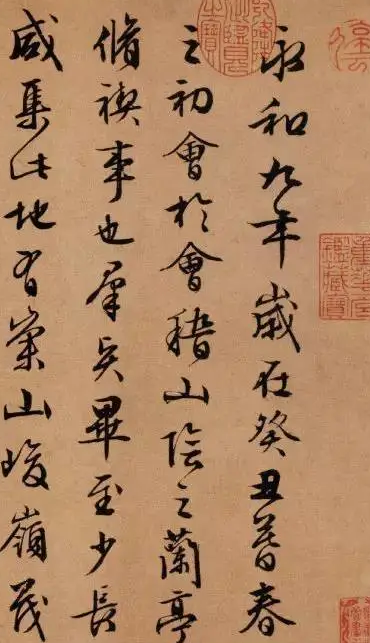 永和九年歲在癸丑暮春
之初會於會稽山陰之蘭亭
脩禊事也羣賢畢至少長
咸集此地有崇山峻嶺茂